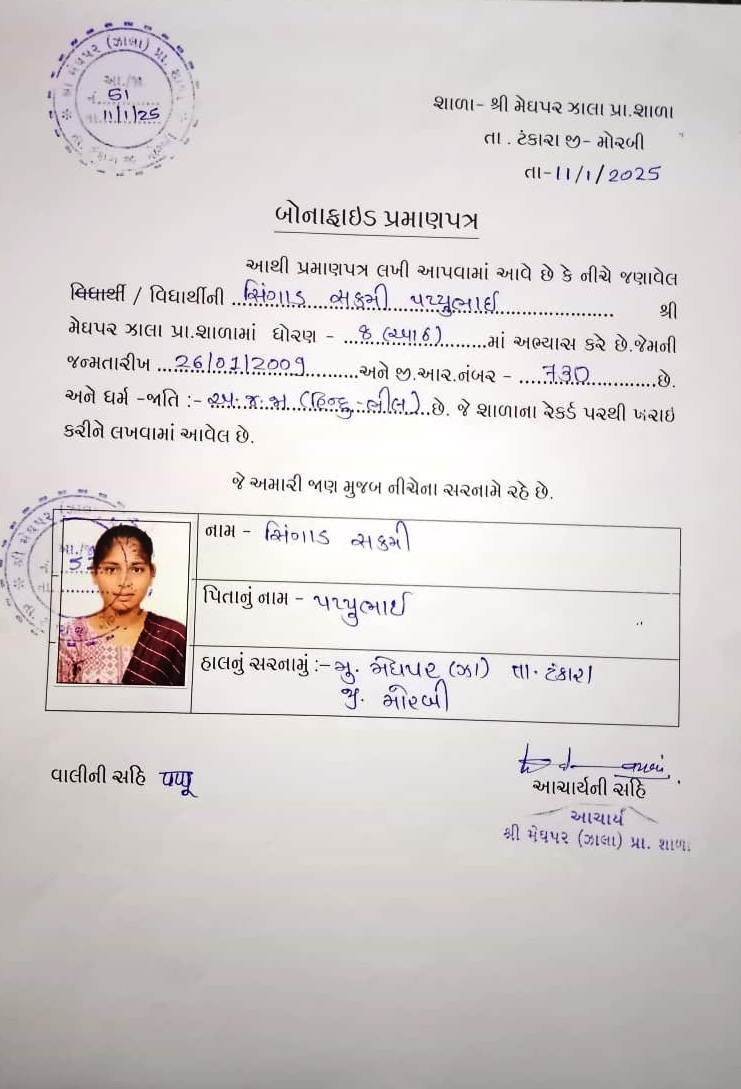 શ્રી મેઘપર (ઝાલા) પ્રા. શાળા
આ./જા
નં. 51
તા. 11/1/25
શાળા- શ્રી મેઘપર ઝાલા પ્રા.શાળા
તા . ટંકારા જી- મોરબી
તા-11/1/2025
બોનાફાઇડ પ્રમાણપત્ર
આથી પ્રમાણપત્ર લખી આપવામાં આવે છે કે નીચે જણાવેલ
વિદ્યાર્થી / વિદ્યાર્થીની ...સિંગાડ પપ્પુભાઈ... શ્રી
મેઘપર ઝાલા પ્રા.શાળામાં ધોરણ - ...8 (આઠ)...માં અભ્યાસ કરે છે.જેમની
જન્મતારીખ ...26/01/2009...અને જી.આર.નંબર - ...730...છે.
અને ધર્મ -જાતિ :- અ.જ.જા (હિન્દુ-ભીલ)..છે. જે શાળાના રેકર્ડ પરથી ખરાઇ
કરીને લખવામાં આવેલ છે.
જે અમારી જાણ મુજબ નીચેના સરનામે રહે છે.
શ્રી મેઘપર
આ./જા
નં. 51
તા.
નામ - સિંગાડ
પિતાનું નામ - પપ્પુભાઈ
હાલનું સરનામું :- મુ. મેઘપર (ઝા) તા. ટંકારા
જી. મોરબી
વાલીની સહિ પપ્પૂ
આચાર્યની સહિ
આચાર્ય
શ્રી મેઘપર (ઝાલા) પ્રા. શાળા